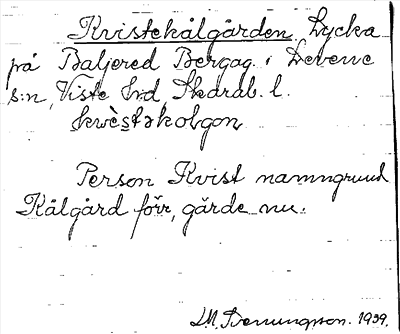 Kvistekålgården, Lycka
på Baljered Bergag. i Levene
s:n, Viste hrd, Skarab. l.
kwèstəkolgon
Person Kvist namngrund
Kålgård förr, gärde nu.
L.M. Svenungson. 1939.